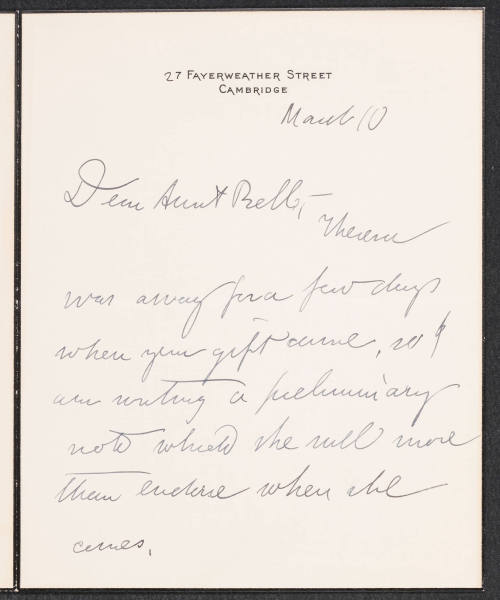 27 Fayerweather Street
Cambridge
March 10
Dear Aunt Belle,
Theresa
was away for a few days
when your gift came, so I
am writing a preliminary
note which she will more
than endorse when she
comes.